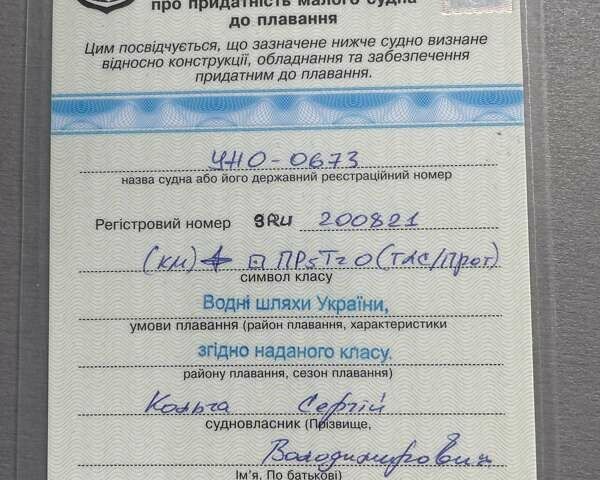 про придатність малого судна
до плавання
Цим посвідчується, що зазначене нижче судно визнане
відносно конструкції, обладнання та забезпечення
придатним до плавання.
УНО-0673
назва судна або його державний реєстраційний номер
Регістровий номер ЗRU 200821
(км) ПР5Т2О(ТЛС/Прот)
символ класу
Водні шляхи України,
умови плавання (район плавання, характеристики
згідно наданого класу.
району плавання, сезон плавання)
Сергій
судновласник (Прізвище,
Володимирович
Ім'я, По батькові)